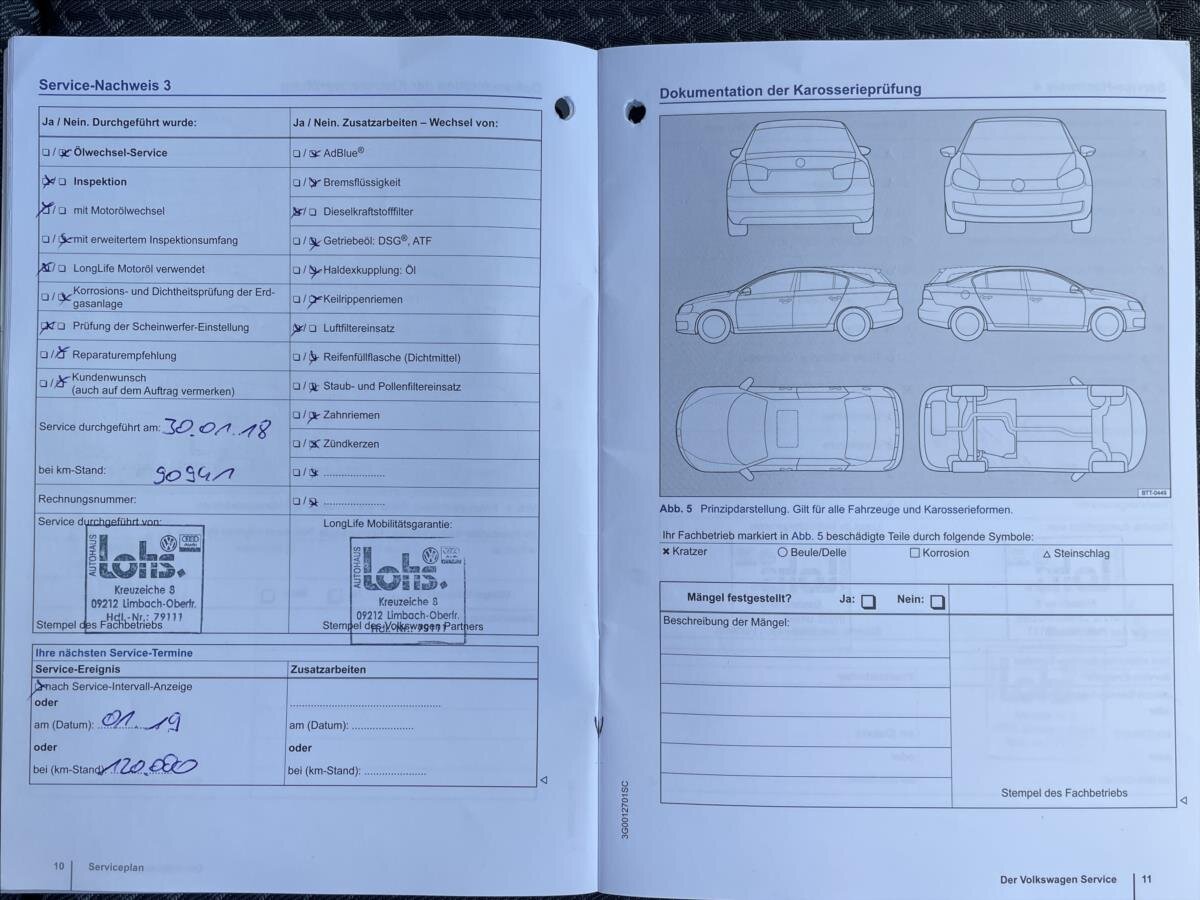 Service-Nachweis 3
Ja / Nein. Durchgeführt wurde:
Ja / Nein. Zusatzarbeiten – Wechsel von:
☐ / ☒ Ölwechsel-Service
☐ / ☒ AdBlue®
☒ / ☐ Inspektion
☐ / ☒ Bremsflüssigkeit
☒ / ☐ mit Motorölwechsel
☒ / ☐ Dieselkraftstofffilter
☐ / ☒ mit erweitertem Inspektionsumfang
☐ / ☒ Getriebeöl: DSG®, ATF
☒ / ☐ LongLife Motoröl verwendet
☐ / ☒ Haldexkupplung: Öl
☐ / ☒ Korrosions- und Dichtheitsprüfung der Erd-
gasanlage
☐ / ☒ Keilrippenriemen
☒ / ☐ Prüfung der Scheinwerfer-Einstellung
☒ / ☐ Luftfiltereinsatz
☐ / ☒ Reparaturempfehlung
☐ / ☒ Reifenfüllflasche (Dichtmittel)
☐ / ☒ Kundenwunsch
(auch auf dem Auftrag vermerken)
☐ / ☒ Staub- und Pollenfiltereinsatz
☐ / ☒ Zahnriemen
Service durchgeführt am: 30.01.18
☐ / ☒ Zündkerzen
bei km-Stand: 90941
☐ / ☒ ....................
Rechnungsnummer:
☐ / ☒ ....................
Service durchgeführt von:
LongLife Mobilitätsgarantie:
AUTOHAUS
Lohs.
Kreuzeiche 8
09212 Limbach-Oberfr.
Hdl.-Nr.: 79111
Stempel des Fachbetriebs
AUTOHAUS
Lohs.
Kreuzeiche 8
09212 Limbach-Oberfr.
Hdl.-Nr.: 79111
Stempel des Volkswagen Partners
Ihre nächsten Service-Termine
Service-Ereignis
Zusatzarbeiten
☒ nach Service-Intervall-Anzeige
oder
am (Datum): 01.19
am (Datum): ....................
oder
oder
bei (km-Stand): 120.000
bei (km-Stand): ....................
10 Serviceplan
Dokumentation der Karosserieprüfung
BTT-0449
Abb. 5 Prinzipdarstellung. Gilt für alle Fahrzeuge und Karosserieformen.
Ihr Fachbetrieb markiert in Abb. 5 beschädigte Teile durch folgende Symbole:
✖ Kratzer ○ Beule/Delle □ Korrosion △ Steinschlag
Mängel festgestellt? Ja: ☐ Nein: ☐
Beschreibung der Mängel:
Stempel des Fachbetriebs
3G0012701SC
Der Volkswagen Service 11